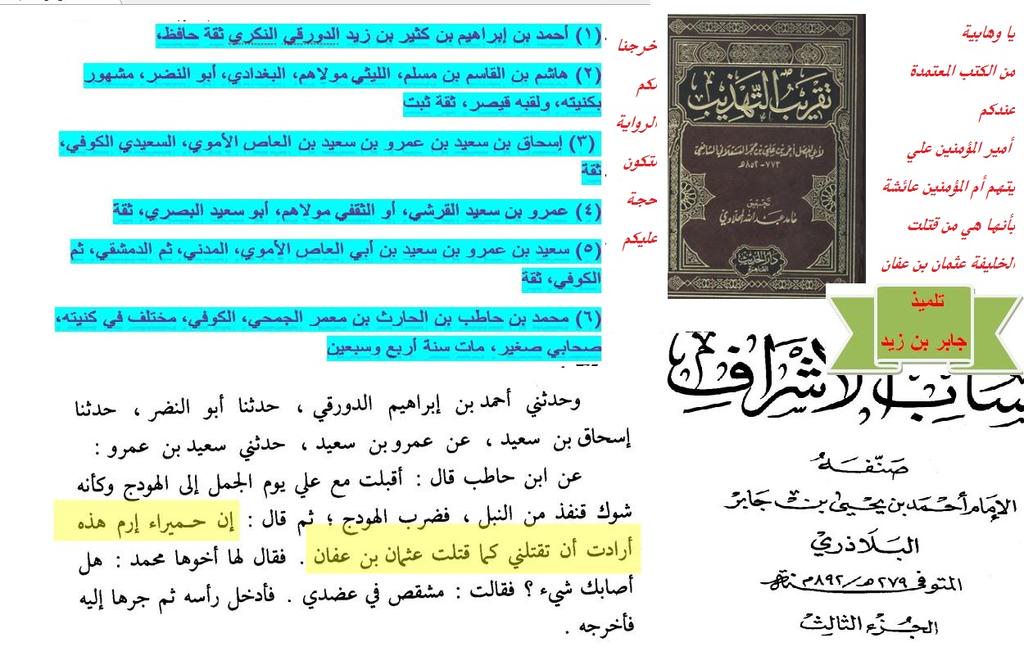 يا وهابية
من الكتب المعتمدة
عندكم
أمير المؤمنين علي
يتهم أم المؤمنين عائشة
بأنها هي من قتلت
الخليفة عثمان بن عفان
خرجنا
لكم
الرواية
لتكون
حجة
عليكم
تقريب التهذيب
٧٧٣-٨٥٢هـ
تحقيق
دار الحديث
القاهرة
(١) أحمد بن إبراهيم بن كثير بن زيد الدورقي النكري ثقة حافظ،
(٢) هاشم بن القاسم بن مسلم، الليثي مولاهم، البغدادي، أبو النضر، مشهور
بكنيته، ولقبه قيصر، ثقة ثبت
(٣) إسحاق بن سعيد بن عمرو بن سعيد بن العاص الأموي، السعيدي الكوفي،
ثقة
(٤) عمرو بن سعيد القرشي، أو الثقفي مولاهم، أبو سعيد البصري، ثقة
(٥) سعيد بن عمرو بن سعيد بن أبي العاص الأموي، المدني، ثم الدمشقي، ثم
الكوفي، ثقة
(٦) محمد بن حاطب بن الحارث بن معمر الجمحي، الكوفي، مختلف في كنيته،
صحابي صغير، مات سنة أربع وسبعين
تلميذ
جابر بن زيد
ساب الأشراف
صنفه
الإمام أحمد بن يحيى بن جابر
البلاذري
المتوفى ٢٧٩هـ/٨٩٢م
الجزء الثالث
وحدثني أحمد بن إبراهيم الدورقي ، حدثنا أبو النضر ، حدثنا
إسحاق بن سعيد ، عن عمرو بن سعيد ، حدثني سعيد بن عمرو :
عن ابن حاطب قال : أقبلت مع علي يوم الجمل إلى الهودج وكأنه
شوك قنفذ من النبل ، فضرب الهودج ؛ ثم قال : إن حميراء إرم هذه
أرادت أن تقتلني كما قتلت عثمان بن عفان . فقال لها أخوها محمد : هل
أصابك شيء ؟ فقالت : مشقص في عضدي . فأدخل رأسه ثم جرها إليه
فأخرجه .